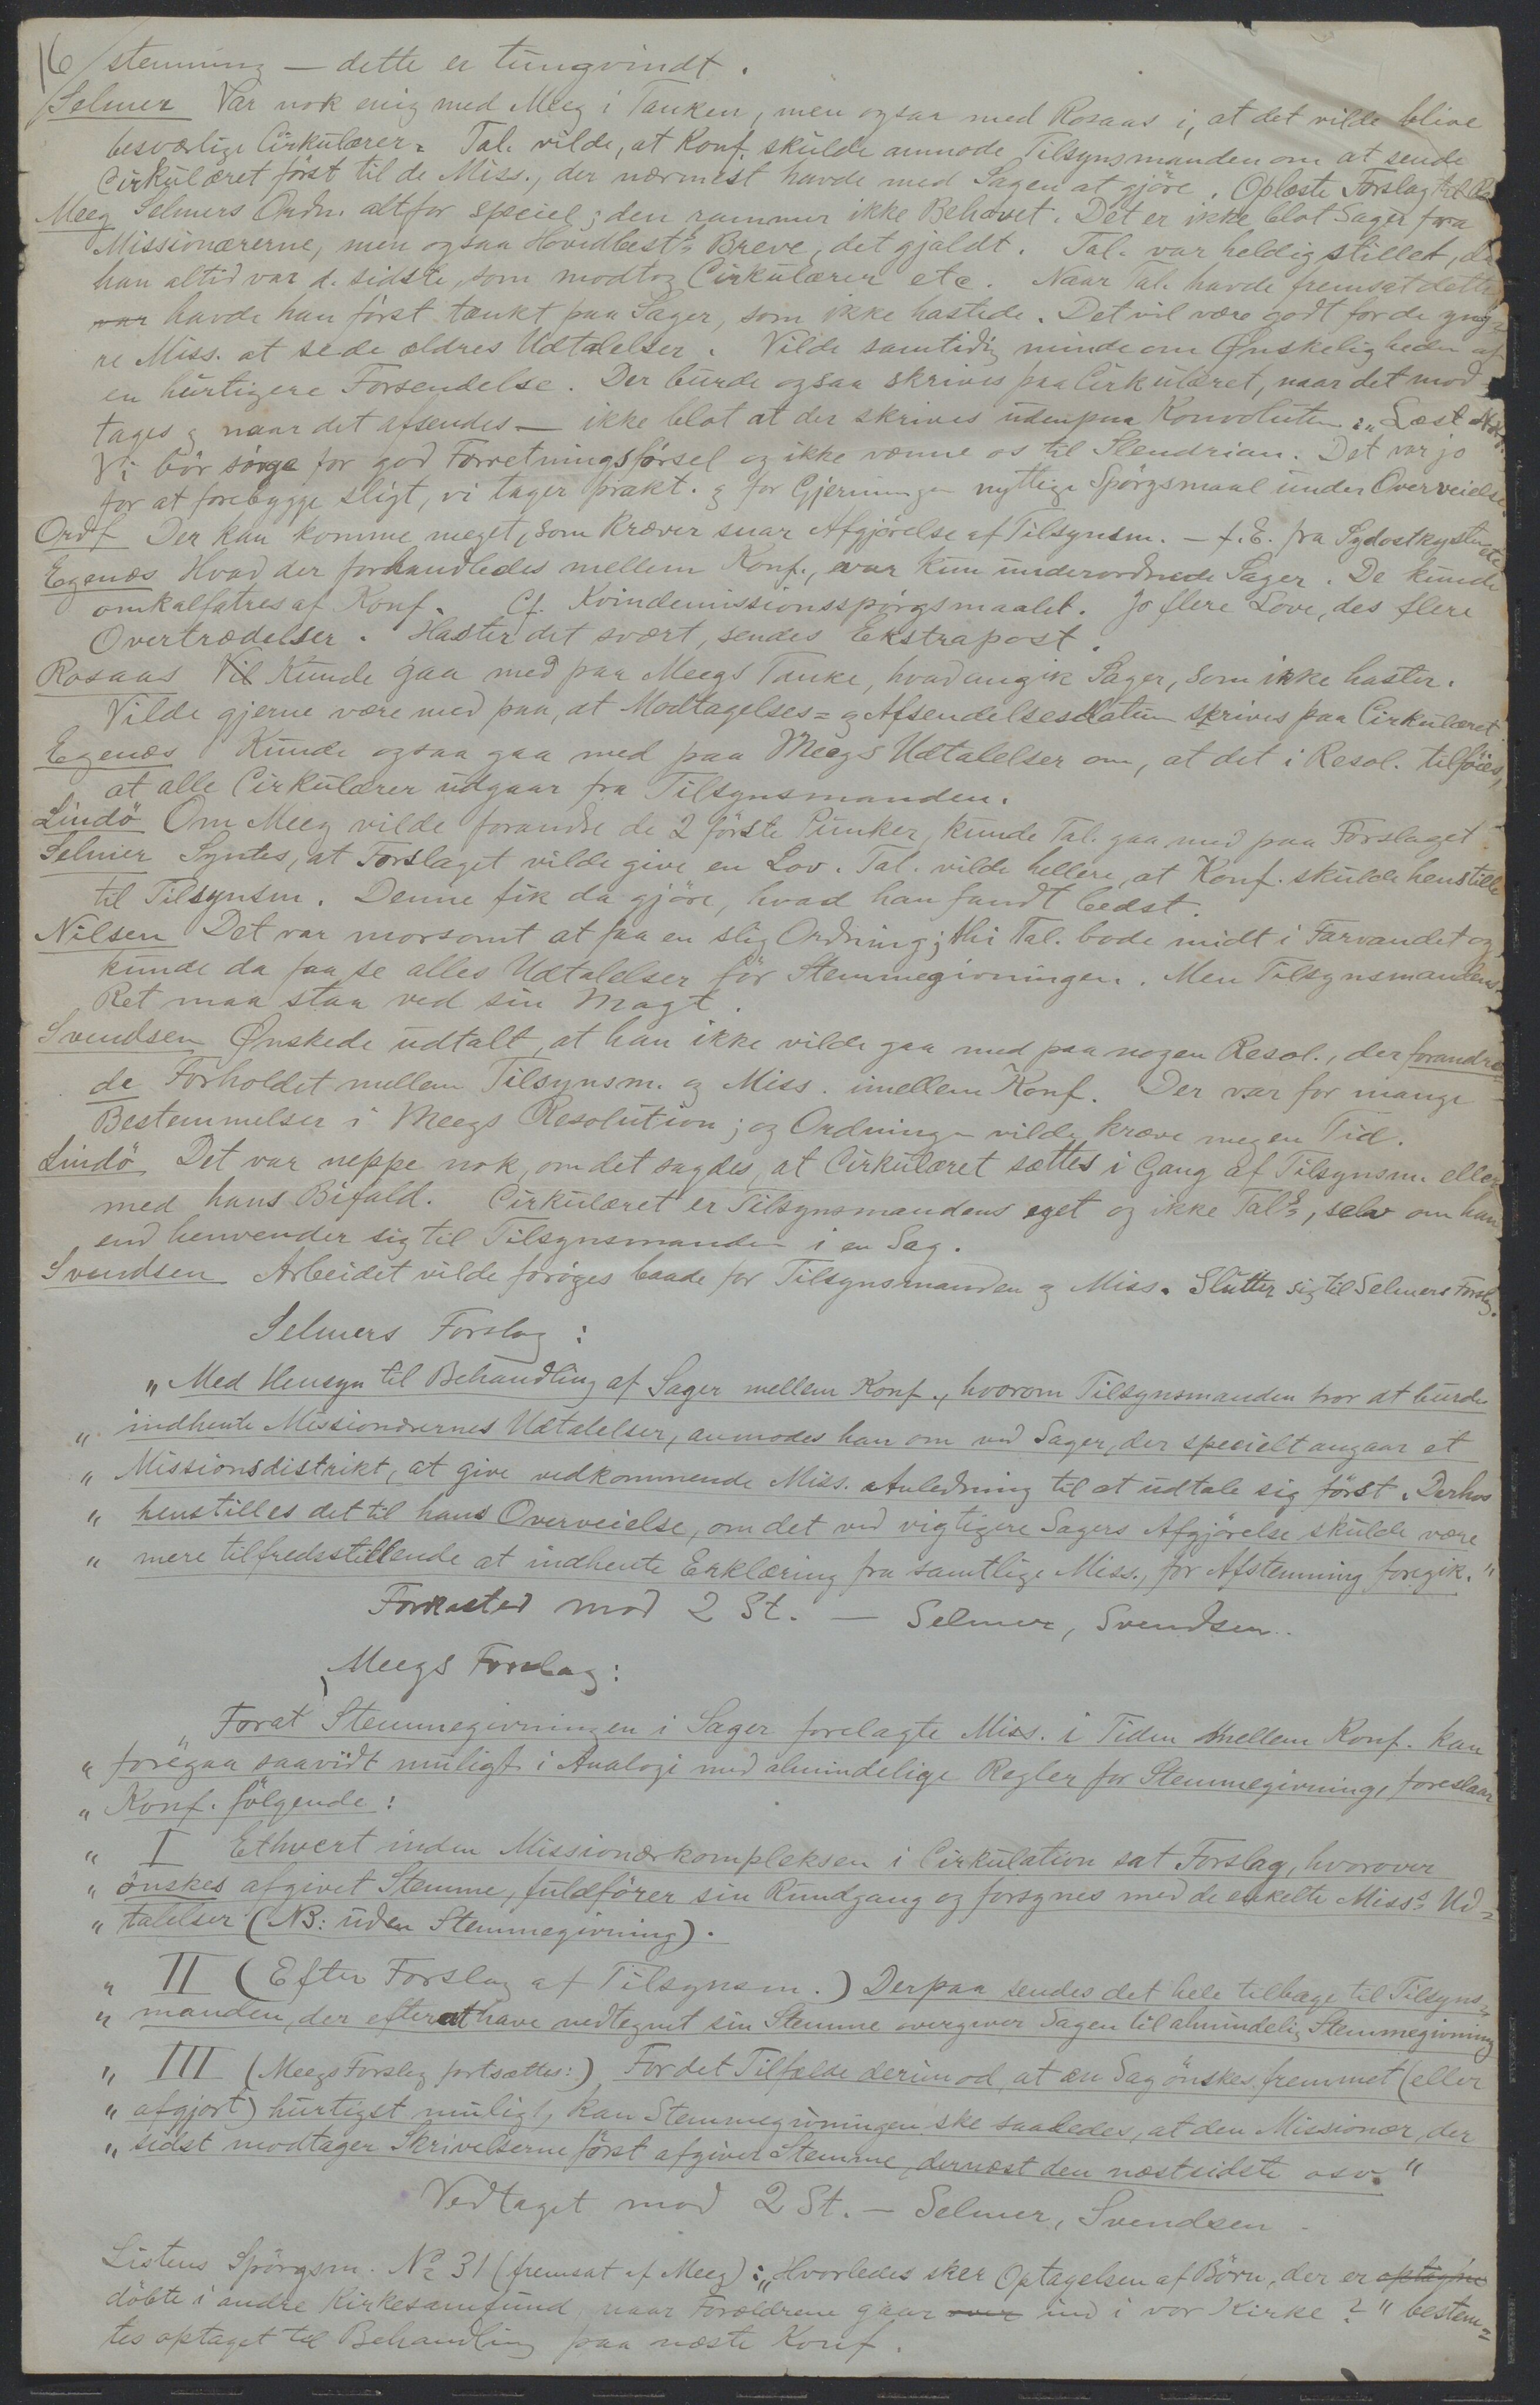 16 stemning — dette er tungvindt.
Selmer Var nok enig med Meeg i Tanken, men ogsaa med Rosaas i, at det vilde blive
besværlige Cirkulærer. Tal. vilde, at Konf. skulde anmode Tilsynsmanden om at sende
Cirkulæret först til de Miss., der nærmest havde med Sagen at gjöre. Oplæste Forslag til
Meeg Selmers Ordn. altfor speciel; den rammer ikke Behovet. Det er ikke blot Sager fra
Missionærerne, men ogsaa Hovedbest.s Breve, det gjaldt. Tal. var heldig stillet, da
han altid var d. sidste, som modtog Cirkulærer etc. Naar Tal. havde fremsat dette
var havde han först tænkt paa Sager, som ikke hastede. Det vil være godt for de yng=
re Miss. at se de ældres Udtalelser. Vilde samtidig minde om Ønskeligheden af
en hurtigere Forsendelse. Der burde ogsaa skrives paa Cirkulæret, naar det mod=
tages og naar det afsendes — ikke blot at der skrives udenpaa Konvoluten: „Læst
Vi bör sörge for god Forretningsförsel og ikke vænne os til Slendrian. Det var jo
for at forebygge sligt, vi tager prakt. og for Gjerningen nyttige Spörgsmaal under Overveielse.
Ordf. Der kan komme meget, som kræver snar Afgjörelse af Tilsynsm. — f. E. fra Sydostkysten etc.
Egenæs Hvad der forhandledes mellem Konf., var kun underordnede Sager. De kunde
omkalfatres af Konf. Cf. Kvindemissionsspörgsmaalet. Jo flere Love, des flere
Overtrædelser. Haster det svært, sendes Ekstrapost.
Rosaas Vil Kunde gaa med paa Meegs Tanke, hvad angik Sager, som ikke haster.
Vilde gjerne være med paa, at Modtagelses= og Afsendelsesdatum skrives paa Cirkulæret.
Egenæs Kunde ogsaa gaa med paa Meegs Udtalelser om, at det i Resol. tilföies,
at alle Cirkulærer udgaar fra Tilsynsmanden.
Lindö Om Meeg vilde forandre de 2 förste Punker, kunde Tal. gaa med paa Forslaget.
Selmer Syntes, at Forslaget vilde give en Lov. Tal. vilde hellere, at Konf. skulde henstille
til Tilsynsm. Denne fik da gjöre, hvad han fandt bedst.
Nilsen Det var morsomt at faa en slig Ordning; thi Tal. bode midt i Farvandet og
kunde da faa se alles Udtalelser för Stemmegivningen. Men Tilsynsmandens
Ret maa staa ved sin Magt.
Svendsen Ønskede udtalt, at han ikke vilde gaa med paa nogen Resol., der forandre=
de Forholdet mellem Tilsynsm. og Miss. imellem Konf. Der var for mange
Bestemmelser i Meegs Resolution; og Ordningen vilde kræve megen Tid.
Lindö Det var neppe nok, om det sagdes, at Cirkulæret sættes i Gang af Tilsynsm. eller
med hans Bifald. Cirkulæret er Tilsynsmandens eget og ikke Tal.s, selv om han
end henvender sig til Tilsynsmanden i en Sag.
Svendsen Arbeidet vilde foröges baade for Tilsynsmanden og Miss. Slutter sig til Selmers Forslag.
Selmers Forslag:
„Med Hensyn til Behandling af Sager mellem Konf., hvorom Tilsynsmanden tror at burde
„ indhente Missionærernes Udtalelser, anmodes han om ved Sager, der specielt angaar et
„ Missionsdistrikt, at give vedkommende Miss. Anledning til at udtale sig först. Derhos
„ henstilles det til hans Overveielse, om det ved vigtigere Sagers Afgjörelse skulde være
„ mere tilfredsstillende at indhente Erklæring fra samtlige Miss., för Afstemning foregik."
Forkasted mod 2 St. — Selmer, Svendsen.
Meegs Forslag:
„Forat Stemmegivningen i Sager forelagte Miss. i Tiden mellem Konf. kan
„ foregaa saavidt muligt i Analogi med almindelige Regler for Stemmegivning, foreslaar
„ Konf. fölgende:
„ I Ethvert inden Missionærkompleksen i Cirkulation sat Forslag, hvorover
„ önskes afgivet Stemme, fuldförer sin Rundgang og forsynes med de enkelte Miss.s Ud=
„ talelser (NB: uden Stemmegivning).
„ II (Efter Forslag af Tilsynsm.) Derpaa sendes det hele tilbage til Tilsyns=
„ manden, der efterat have nedtegnet sin Stemme overgiver Sagen til almindelig Stemmegivning
„ III (Meegs Forslag fortsættes:) For det Tilfælde derimod, at en Sag önskes fremmet (eller
„ afgjort) hurtigst muligt, kan Stemmegivningen ske saaledes, at den Missionær, der
„ sidst modtager Skrivelserne först afgiver Stemme, dernæst den næstsidste osv."
Vedtaget mod 2 St. — Selmer, Svendsen.
Listens Spörgsm. No 31 (fremsat af Meeg): „Hvorledes sker Optagelsen af Börn, der er optagne
döbte i andre Kirkesamfund, naar Forældrene gaar over ind i vor Kirke?" bestem=
tes optaget til Behandling paa næste Konf.